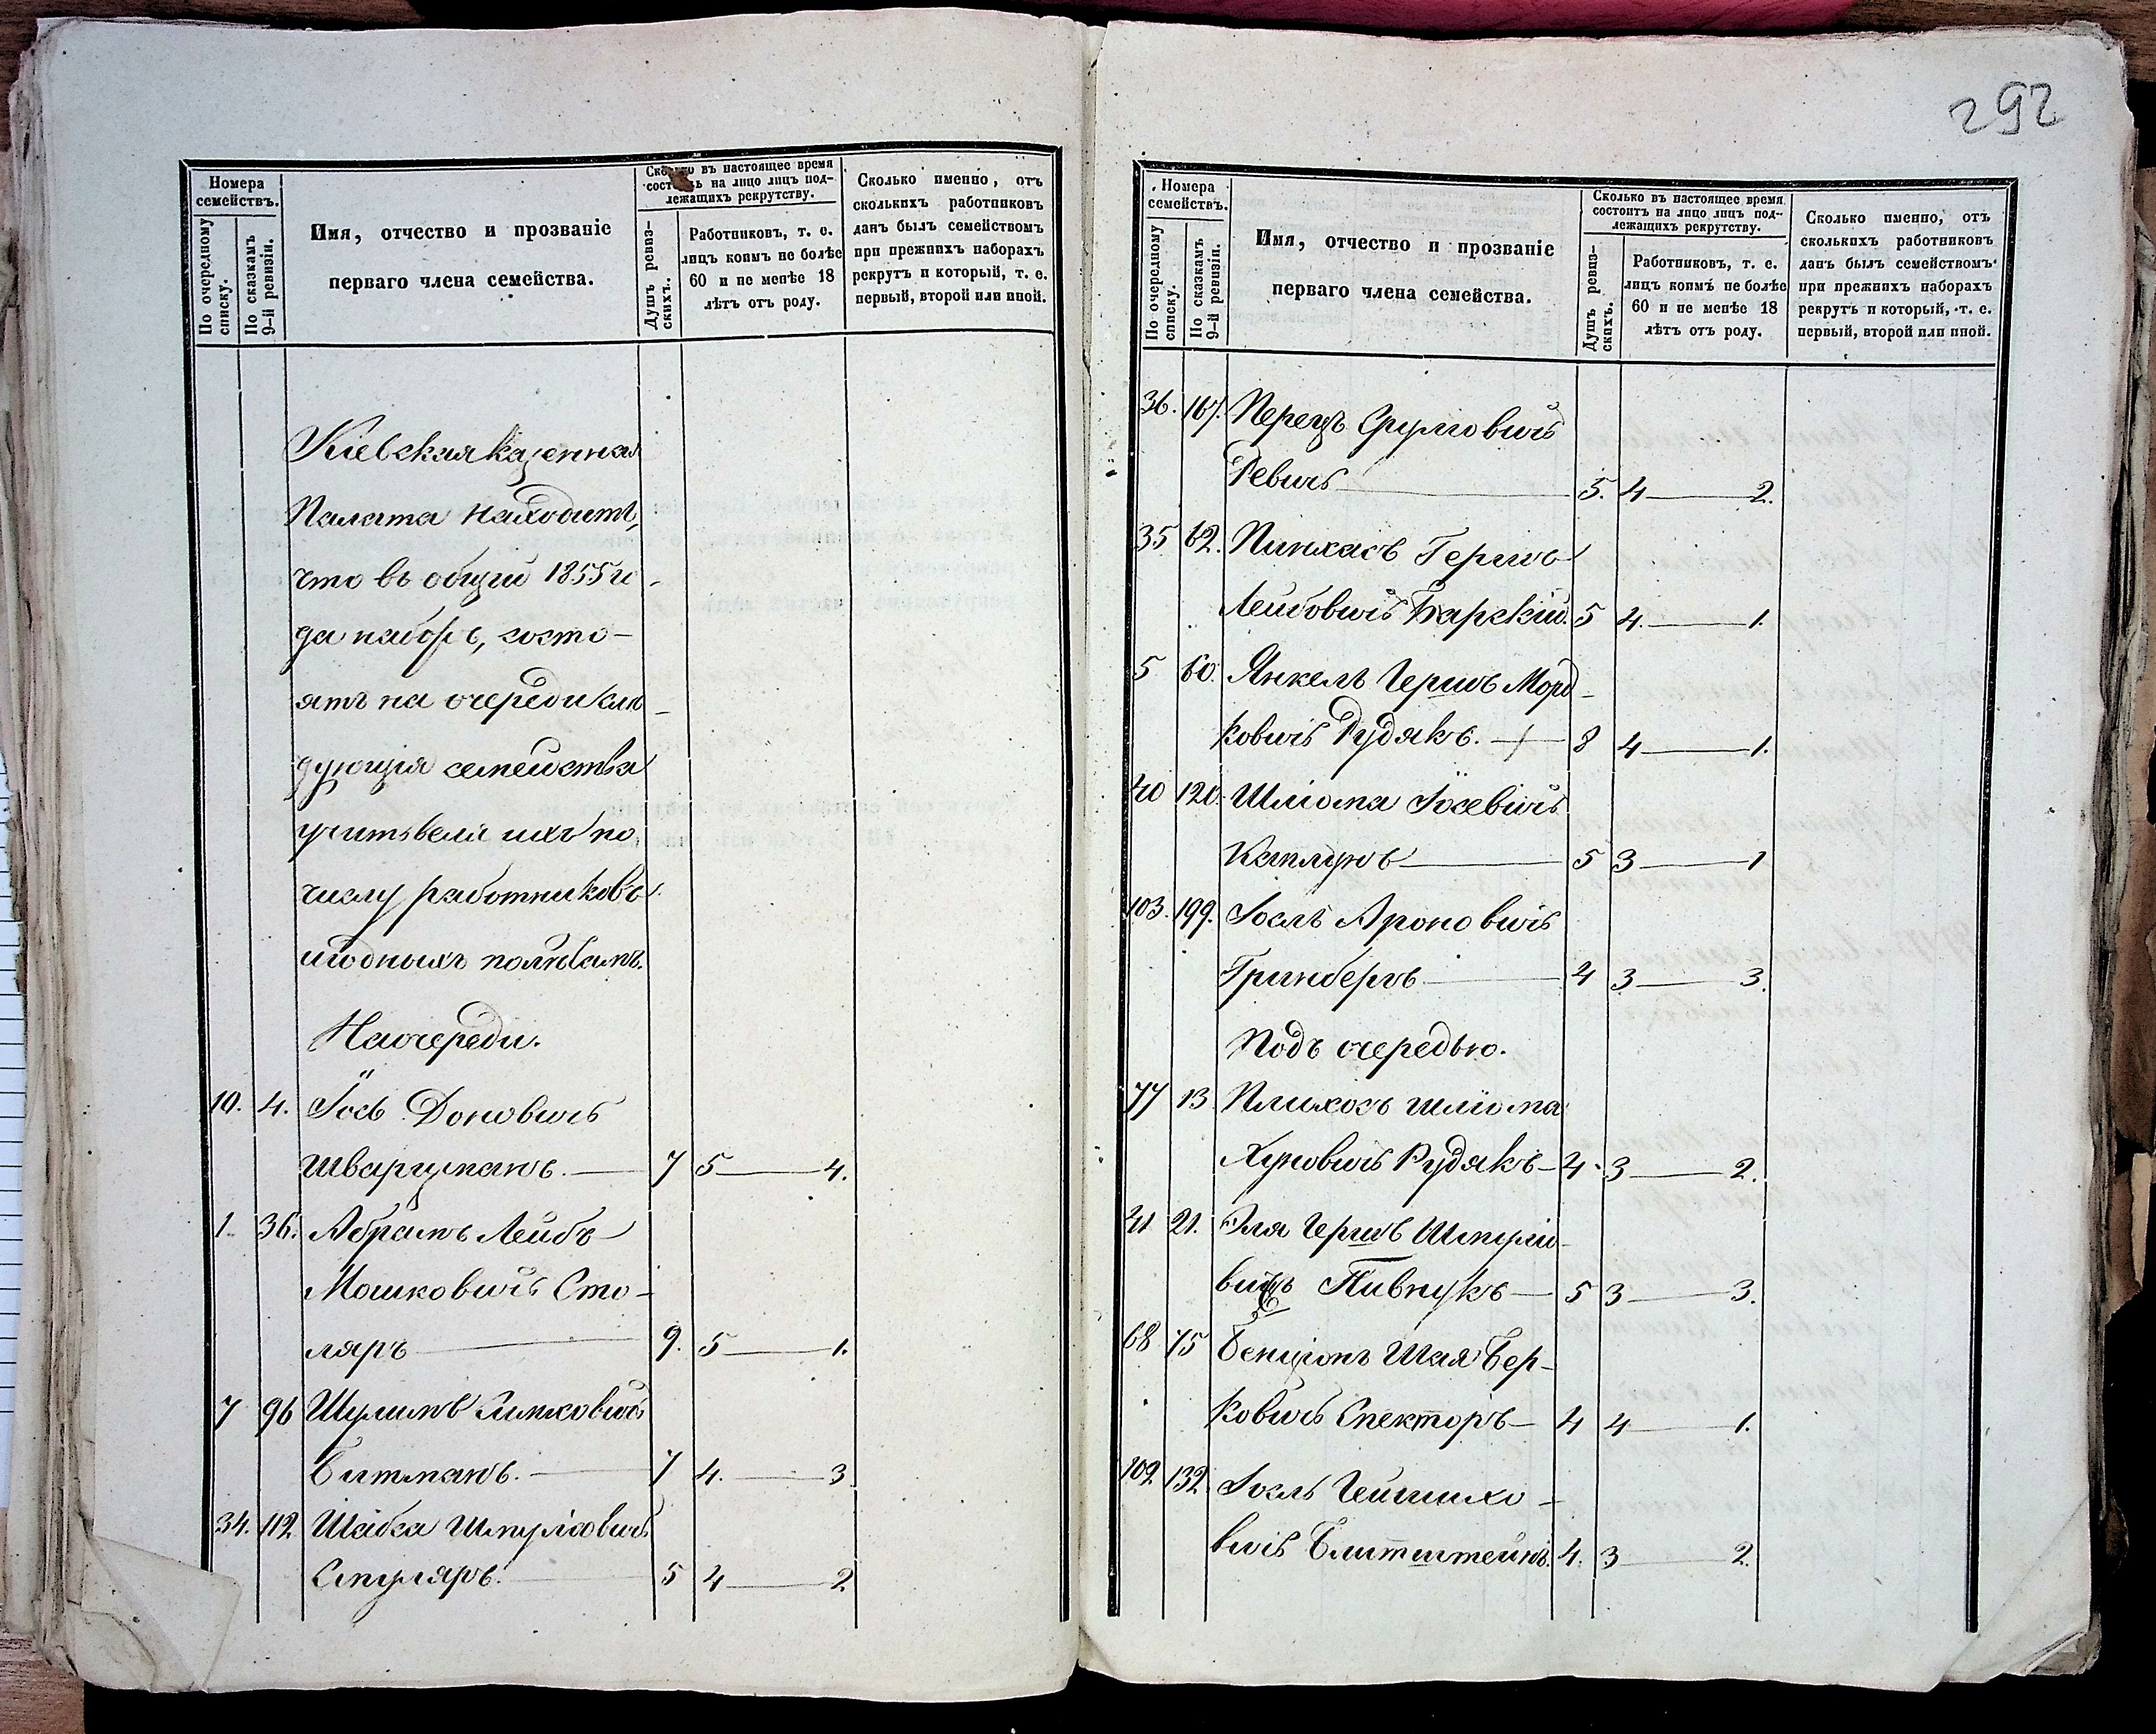 292
Номера
семействъ.
По очередному
списку.
По сказкамъ
9-й ревизіи.
Имя, отчество и прозваніе
перваго члена семейства.
въ настоящее время
на лицо лицъ под-
лежащихъ рекрутству.
Душъ ревиз-
скихъ.
Работниковъ, т. е.
лицъ коимъ не болѣе
60 и не менѣе 18
лѣтъ отъ роду.
Сколько именно, отъ
сколькихъ работниковъ
данъ былъ семействомъ
при прежнихъ наборахъ
рекрутъ и который, т. е.
первый, второй или иной.
Кіевская казенная
Палата находитъ,
что въ общій 1855 го-
да наборъ, состо-
ятъ на очереди слѣ-
дующія семейства
по
числу работниковъ
На очереди.
10. 4. Іось Доновичъ
Шварцманъ. 7 5 4.
1. 36. Абрамъ Лейбъ
Мошковичъ Сто-
ляръ 9. 5 1.
7 96 Шулимъ
Битманъ. 7 4. 3
34. 112 Шабса Шмуліовичъ
Смуляръ. 5 4 2
Номера
семействъ.
По очередному
списку.
По сказкамъ
9-й ревизіи.
Имя, отчество и прозваніе
перваго члена семейства.
Сколько въ настоящее время
состоитъ на лицо лицъ под-
лежащихъ рекрутству.
Душъ ревиз-
скихъ.
Работниковъ, т. е.
лицъ коимъ не болѣе
60 и не менѣе 18
лѣтъ отъ роду.
Сколько именно, отъ
сколькихъ работниковъ
данъ былъ семействомъ
при прежнихъ наборахъ
рекрутъ и который, т. е.
первый, второй или иной.
36. 167. Перецъ Сруловичъ
Ревичъ 5. 4 2.
35 62. Пинхасъ Гершъ
Лейбовичъ Барскій. 5 4. 1.
5 60. Янкель Гершъ Морд-
ковичъ Рудякъ. 8 4 1.
40 120. Шліома Іосевичъ
Каплунъ 5 3 1
103. 199. Іосль Ароновичъ
Гринбергъ 4 3 3.
Подъ очередью.
77 13. Шліома
Хуновичъ Рудякъ 4 3 2.
41 21. Эля Гершъ Шмуліо-
вичъ Пивнукъ 5 3 3.
68 75 Бенціонъ Шая Бер-
ковичъ Спекторъ 4 4 1.
102 132. Іосль
вичъ Блитштейнъ. 4. 3 2.